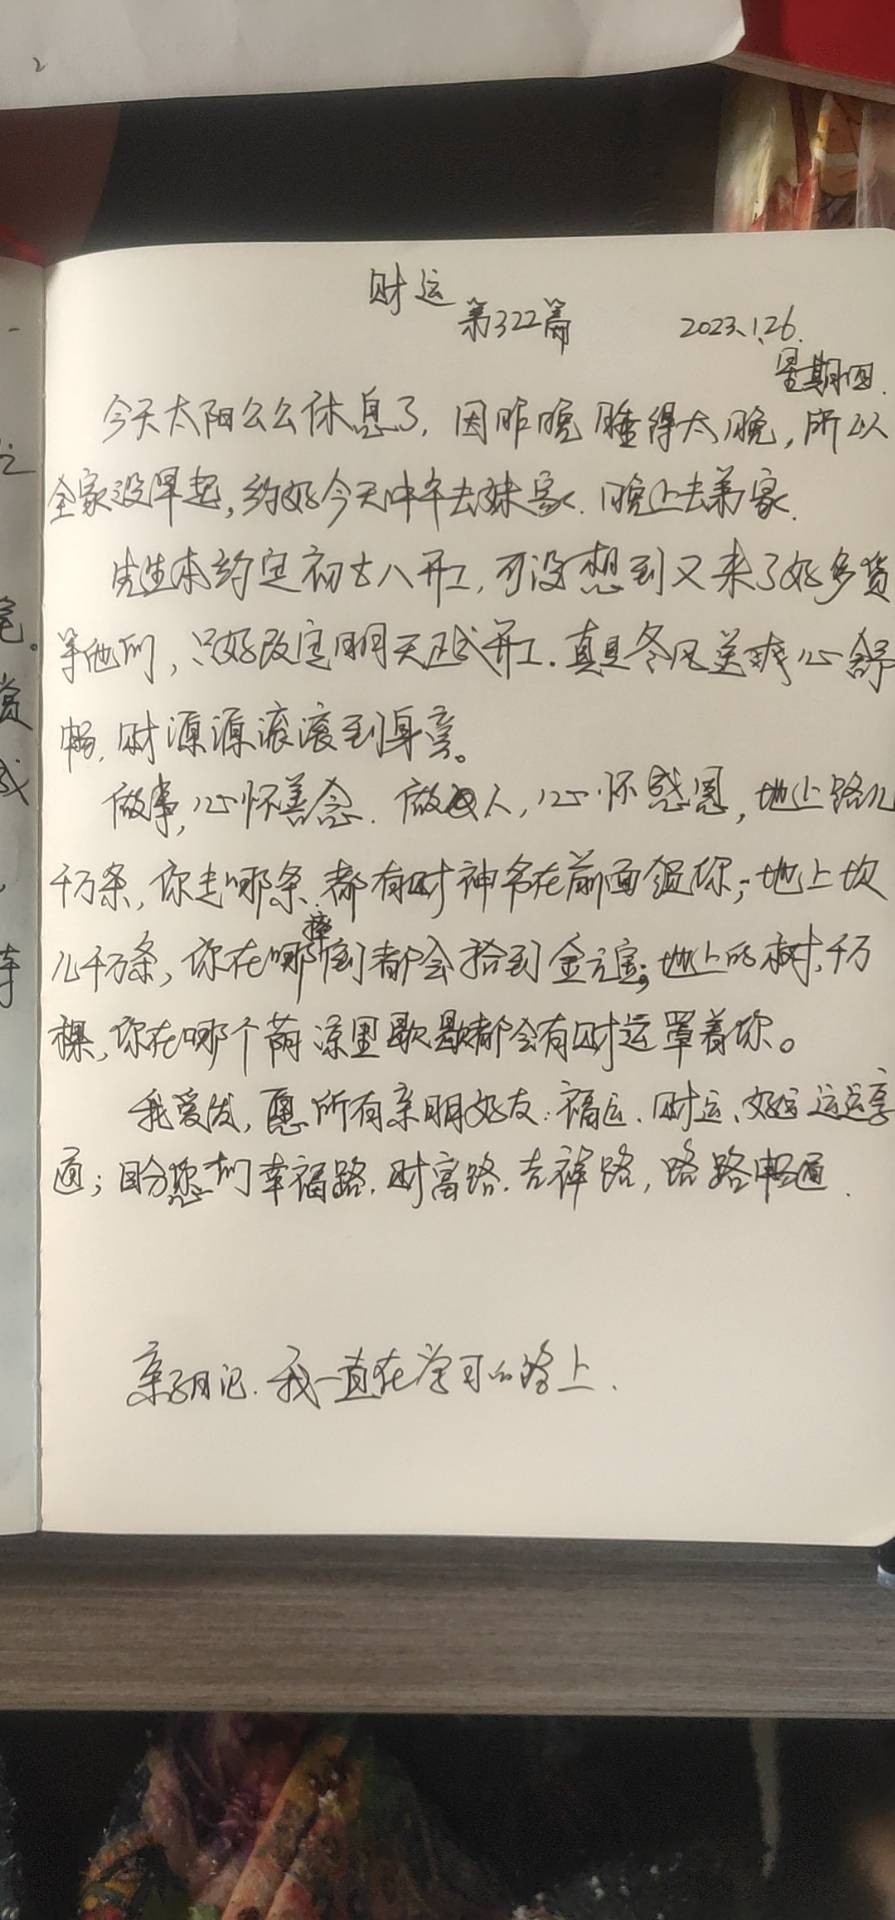 2
财运
第322篇
2023.1.26.
星期四.
今天太阳公公休息了, 因昨晚睡得太晚, 所以
全家没早起, 约好今天中午去妹家. 晚上去弟家.
先生本约定初七八开工, 可没想到又来了好多货
等他们, 只好改定明天正式开工. 真是冬风送爽心舒
畅, 财源源滚滚到身旁。
做事, 心怀善念. 做人, 心怀感恩, 地上路几
千万条, 你走哪条都有财神爷在前面领你; 地上坎
几千万条, 你在哪摔倒都会拾到金元宝; 地上的树, 千万
棵, 你在哪个荫凉里歇歇都会有财运罩着你。
我爱发, 愿所有亲朋好友: 福运、财运、好运运运享
通; 盼您们幸福路. 财富路. 吉祥路, 路路畅通.
亲子日记. 我一直在学习的路上.